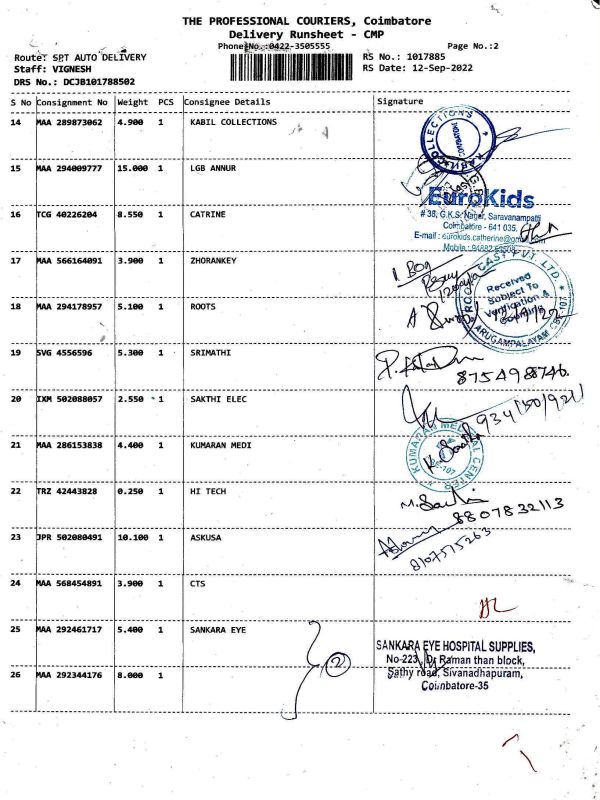 THE PROFESSIONAL COURIERS, Coimbatore
Delivery Runsheet - CMP
Phone No.:0422-3505555
Page No.:2
Route: SPT AUTO DELIVERY
Staff: VIGNESH
DRS No.: DCJB101788502
RS No.: 1017885
RS Date: 12-Sep-2022
S No Consignment No Weight PCS Consignee Details Signature
14 MAA 289873062 4.900 1 KABIL COLLECTIONS
15 MAA 294009777 15.000 1 LGB ANNUR
EuroKids
# 38, G.K.S. Nagar, Saravanampatti
Coimbatore - 641 035.
E-mail : eurokids.catherine@gm
Mobile :
16 TCG 40226204 8.550 1 CATRINE
17 MAA 566164091 3.900 1 ZHORANKEY
1 Box
CAST PVT. LTD.
Received
Subject To
Verification &
ARUGAMPALAYAM
18 MAA 294178957 5.100 1 ROOTS
19 SVG 4556596 5.300 1 SRIMATHI
8754988746.
20 IXM 502088057 2.550 1 SAKTHI ELEC
21 MAA 286153838 4.400 1 KUMARAN MEDI
KUMARAN MEDICAL CENTER
22 TRZ 42443828 0.250 1 HI TECH
8807832113
23 JPR 502080491 10.100 1 ASKUSA
8107515263
24 MAA 568454891 3.900 1 CTS
25 MAA 292461717 5.400 1 SANKARA EYE
2
SANKARA EYE HOSPITAL SUPPLIES,
No-223, Dr Raman than block,
Sathy road, Sivanadhapuram,
Coimbatore-35
26 MAA 292344176 8.000 1